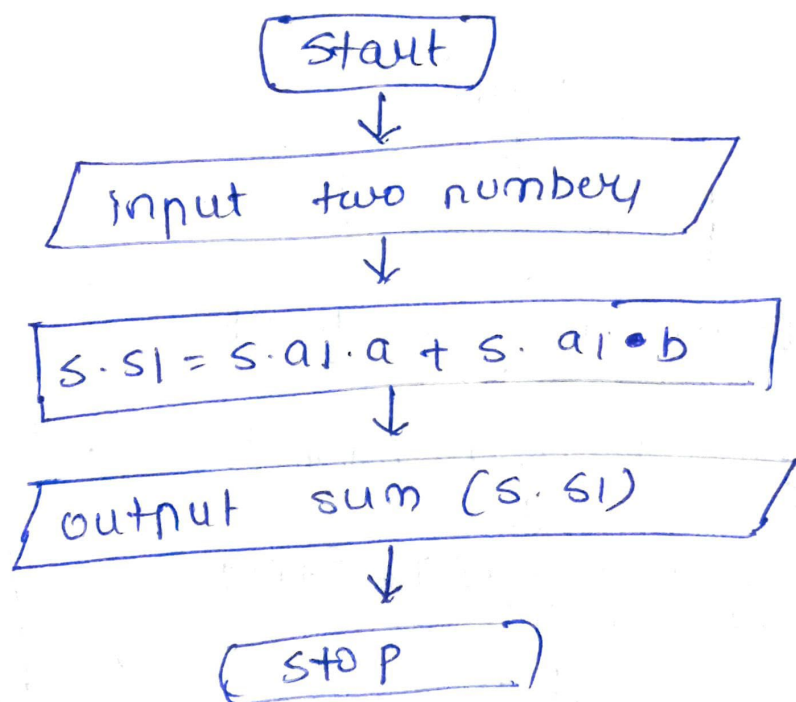 Start
input two numbers
S.S1 = S.a1.a + S.a1.b
output sum (S.S1)
Stop